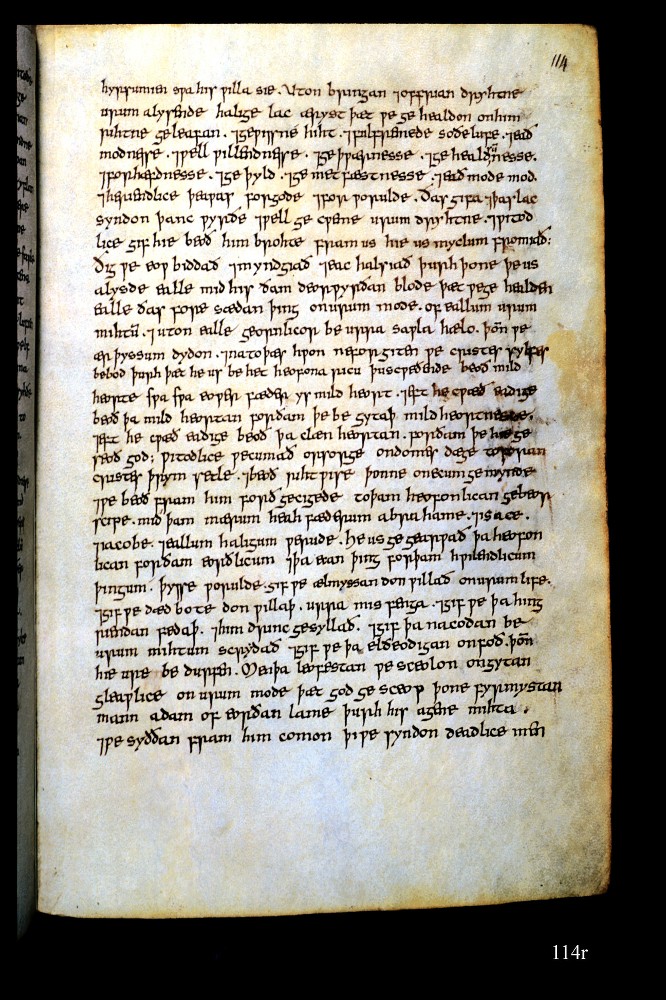 114
hyrsumien swa his willa sie. Uton bringan ⁊offrian dryhtne
urum alysende halige lac æryst þæt we ge healdon onhim
rihtne geleafan. ⁊gewisne hiht. ⁊fulfremede soðe lufe. ⁊ead
modnesse. ⁊well willendnesse. ⁊geþwærnesse. ⁊ge healdsumnesse.
⁊forhæfdnesse. ⁊ge þyld. ⁊ge met fæstnesse. ⁊ead mode mod.
þæfar forgode ⁊for worulde. Ðas gifa ⁊þas lac
syndon þanc wyrðe ⁊well ge cweme urum dryhtne. ⁊witod
lice gif hie beoð him brohte fram us hie us myclum fromiað:
Ðis we eow biddað ⁊myndgiað ⁊eac halsiað þurh þone þe us
alysde ealle mid his ðam deorwyrðan blode þæt we ge healden
ealle ðas fore sædan þing onurum mode. of eallum urum
mihtū. ⁊uton ealle geornlicor be urra sawla hælo. þoñ we
ær þyssum dydon. ⁊nato þæs hwon ne forgiten we cristes sylfes
bebod þurh þæt he us be het heofona ricu þus cweðende beoð mild
heorte swa swa eower fæder ys mild heort. ⁊eft he cwæð eadige
beoð þa mild heortan forðam þe be gytaþ mildheortnesse.
⁊eft he cwæð eadige beoð þa clæn heortan. forðam þe hie ge
seoð god; witodlice wecumað orsorge ondomes dæge toforan
cristes þrym setle. ⁊beoð riht wise þonne onecum ge mynde
⁊we beoð fram him forð gecigede toþam heofonlican gebeor
scipe. mid þam mærum heah fæderum abrahame. ⁊isace.
⁊iacobe. ⁊eallum haligum werude. he us ge gearwað þa heofon
lican forðam eorðlicum ⁊þa ecan þing forþam hwilendlicum
þingum. þysse worulde. gif we ælmyssan don willað onurum life.
⁊gif we dæd bote don willaþ. urra mis feriga. ⁊gif we þa hing
riendan fedaþ. ⁊him drinc gesyllað. ⁊gif þa nacodan be
urum mihtum scrydað ⁊gif we þa elðeodigan onfoð. þoñ
hie ure be durfen. Men þa leofestan we sceolon ongytan
gleawlice on urum mode þæt god ge sceop þone fyrmystan
mann adam of eorðan lame þurh his agene mihta.
⁊we syððan fram him comon ⁊we syndon deadlice men
114r